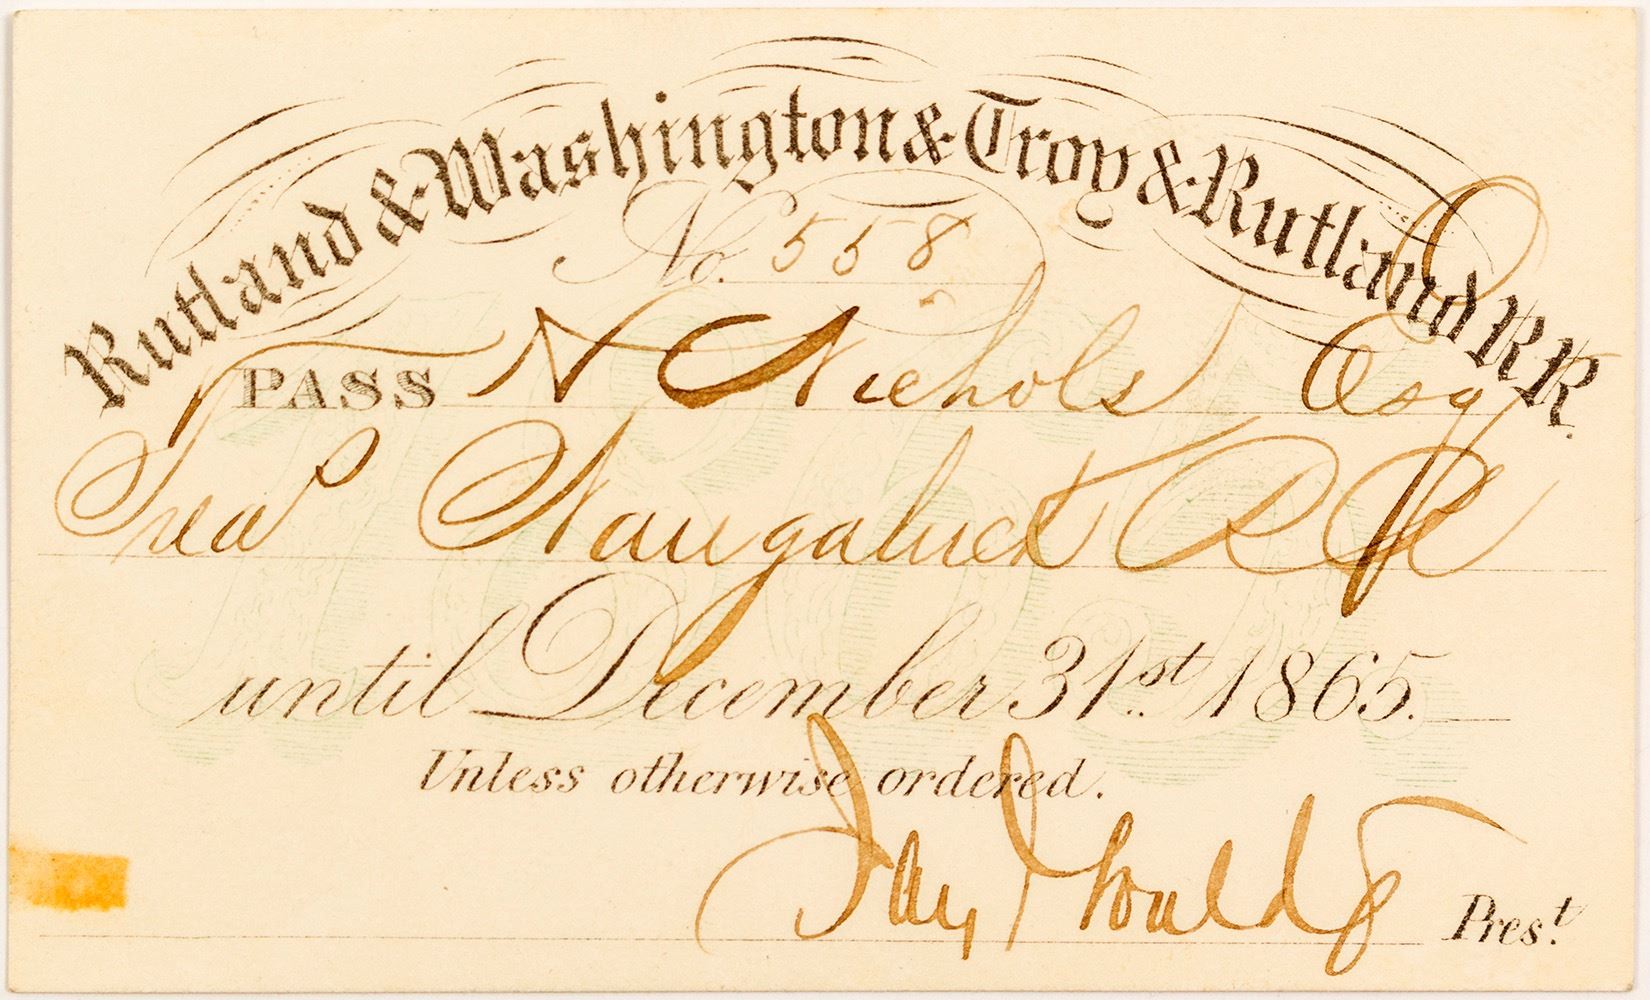 Rutland & Washington & Troy & Rutland RR.
No. 558
PASS N C Nichols Esq
Treas Naugatuck RR
until December 31st. 1865.
Unless otherwise ordered.
Jay Gould Pres.t